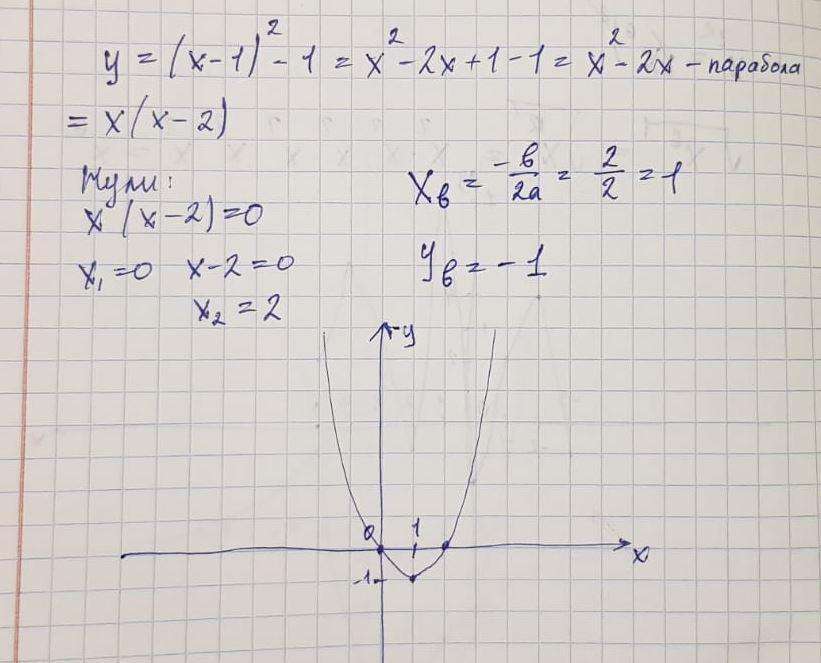 y = (x-1)² - 1 = x² - 2x + 1 - 1 = x² - 2x - парабола
= x(x-2)
Нули:
x(x-2)=0
x₁=0 x-2=0
x₂=2
xв = -в/2a = 2/2 = 1
yв = -1
y
0
1
x
-1